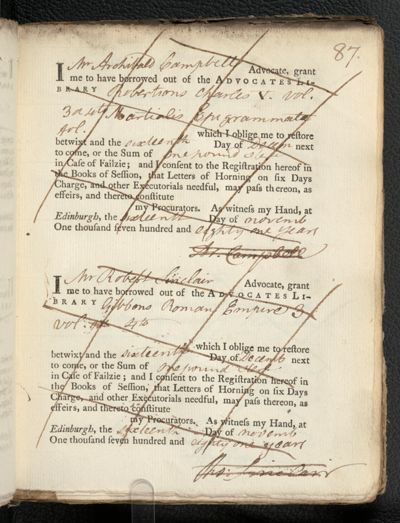 87.
I Mr Archibald Campbell Advocate, grant
me to have borrowed out of the ADVOCATES LI-
BRARY Robertsons Charles V. vol.
3d & 4th Martialis Epigrammata
vol. which I oblige me to restore
betwixt and the sixteenth Day of next
to come, or the Sum of one pound
in Case of Failzie; and I consent to the Registration hereof in
the Books of Session, that Letters of Horning on six Days
Charge, and other Executorials needful, may pass thereon, as
effeirs, and thereto constitute
my Procurators. As witness my Hand, at
Edinburgh, the sixteenth Day of novemb
One thousand seven hundred and eighty one years
Ar. Campbell
I Mr Robert Sinclair Advocate, grant
me to have borrowed out of the ADVOCATES LI-
BRARY Gibbons Roman Empire
vol. 4th
which I oblige me to restore
betwixt and the sixteenth Day of decemb next
to come, or the Sum of one pound
in Case of Failzie; and I consent to the Registration hereof in
the Books of Session, that Letters of Horning on six Days
Charge, and other Executorials needful, may pass thereon, as
effeirs, and thereto constitute
my Procurators. As witness my Hand, at
Edinburgh, the sixteenth Day of novemb
One thousand seven hundred and eighty one years
Sinclair